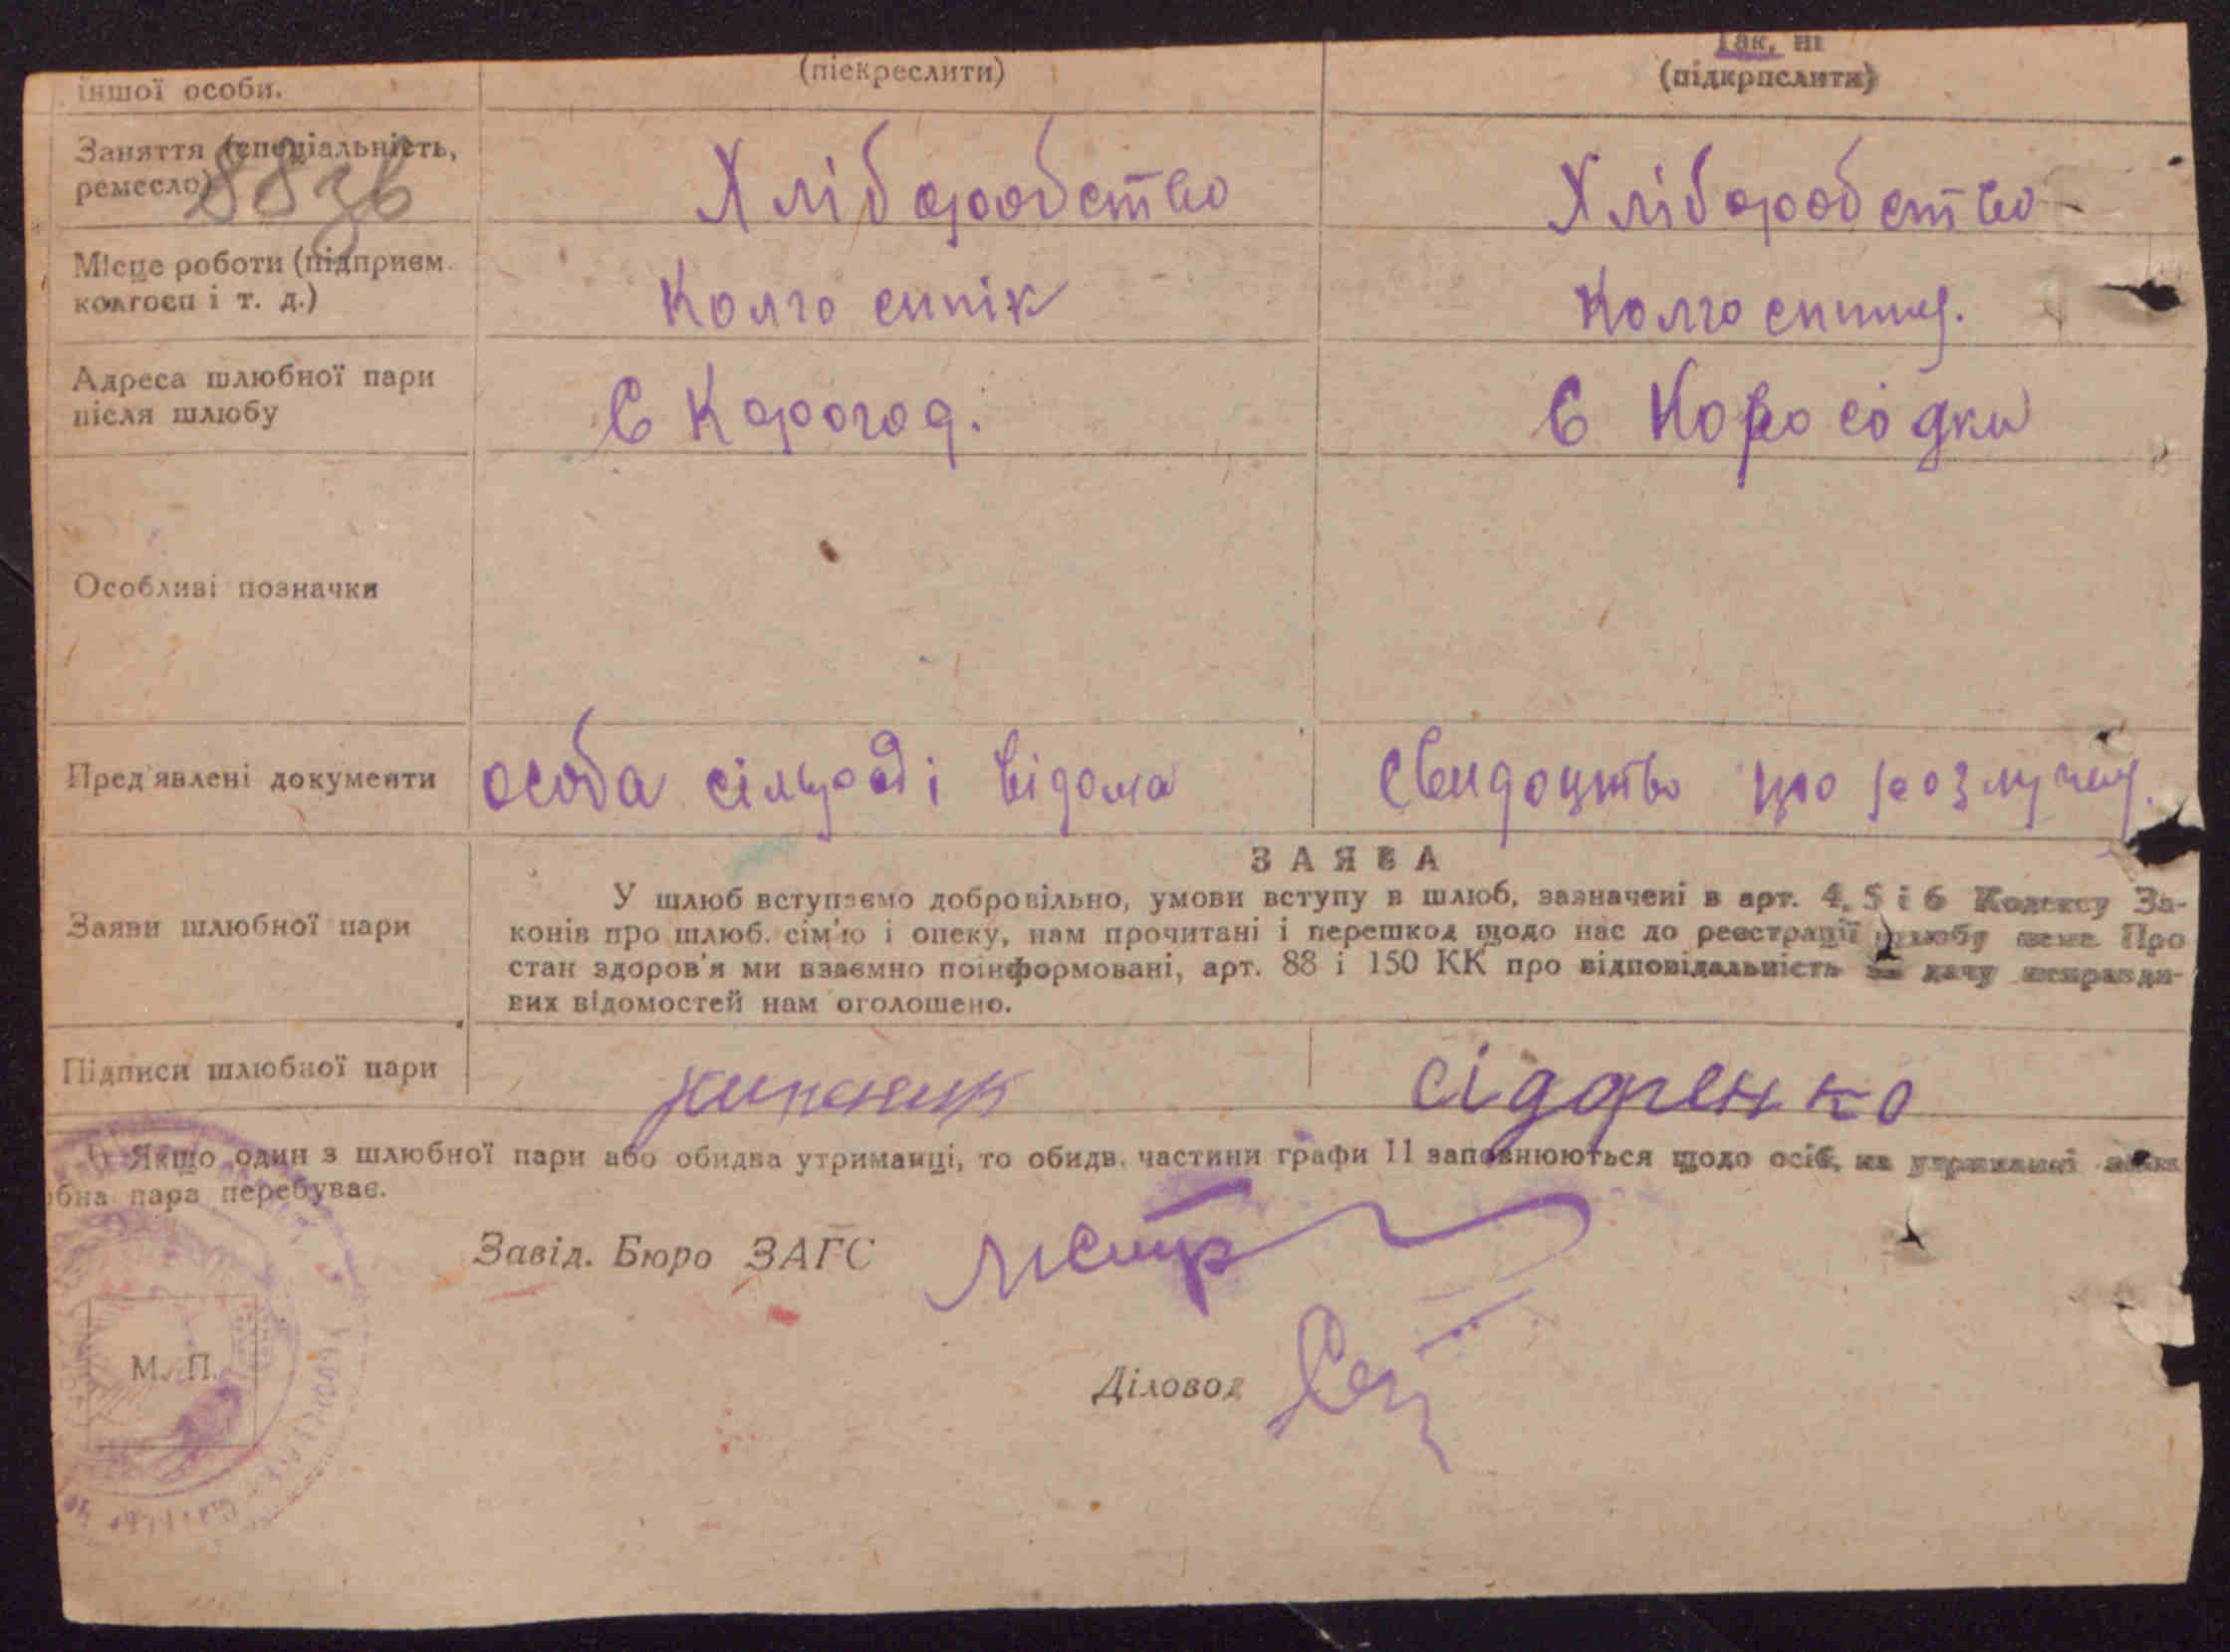 Так, ні
іншої особи. (піекреслити) (підкрпслити)
Заняття (спеціальність,
ремесло) 88 зв Хліборобство Хліборобство
Місце роботи (підприєм.
колгосп і т. д.) Колгоспнік Колгоспниц.
Адреса шлюбної пари
після шлюбу С Корогод. С
Особливі позначки
Пред'явлені документи особа сілраді відома свидоцтво про розлучен.
ЗАЯВА
У шлюб вступаємо добровільно, умови вступу в шлюб, зазначені в арт. 4, 5 і 6 Кодексу За-
Заяви шлюбної пари
конів про шлюб. сім'ю і опеку, нам прочитані і перешкод щодо нас до реєстрації шлюбу нема Про
стан здоров'я ми взаємно поінформовані, арт. 88 і 150 КК про відповідальність за дачу неправди-
вих відомостей нам оголошено.
Підписи шлюбної пари сідоренко
1) Якщо один з шлюбної пари або обидва утриманці, то обидв. частини графи 11 заповнюються щодо осіб, на утриманні
бна пара перебуває.
Завід. Бюро ЗАГС
М. П.
Діловод